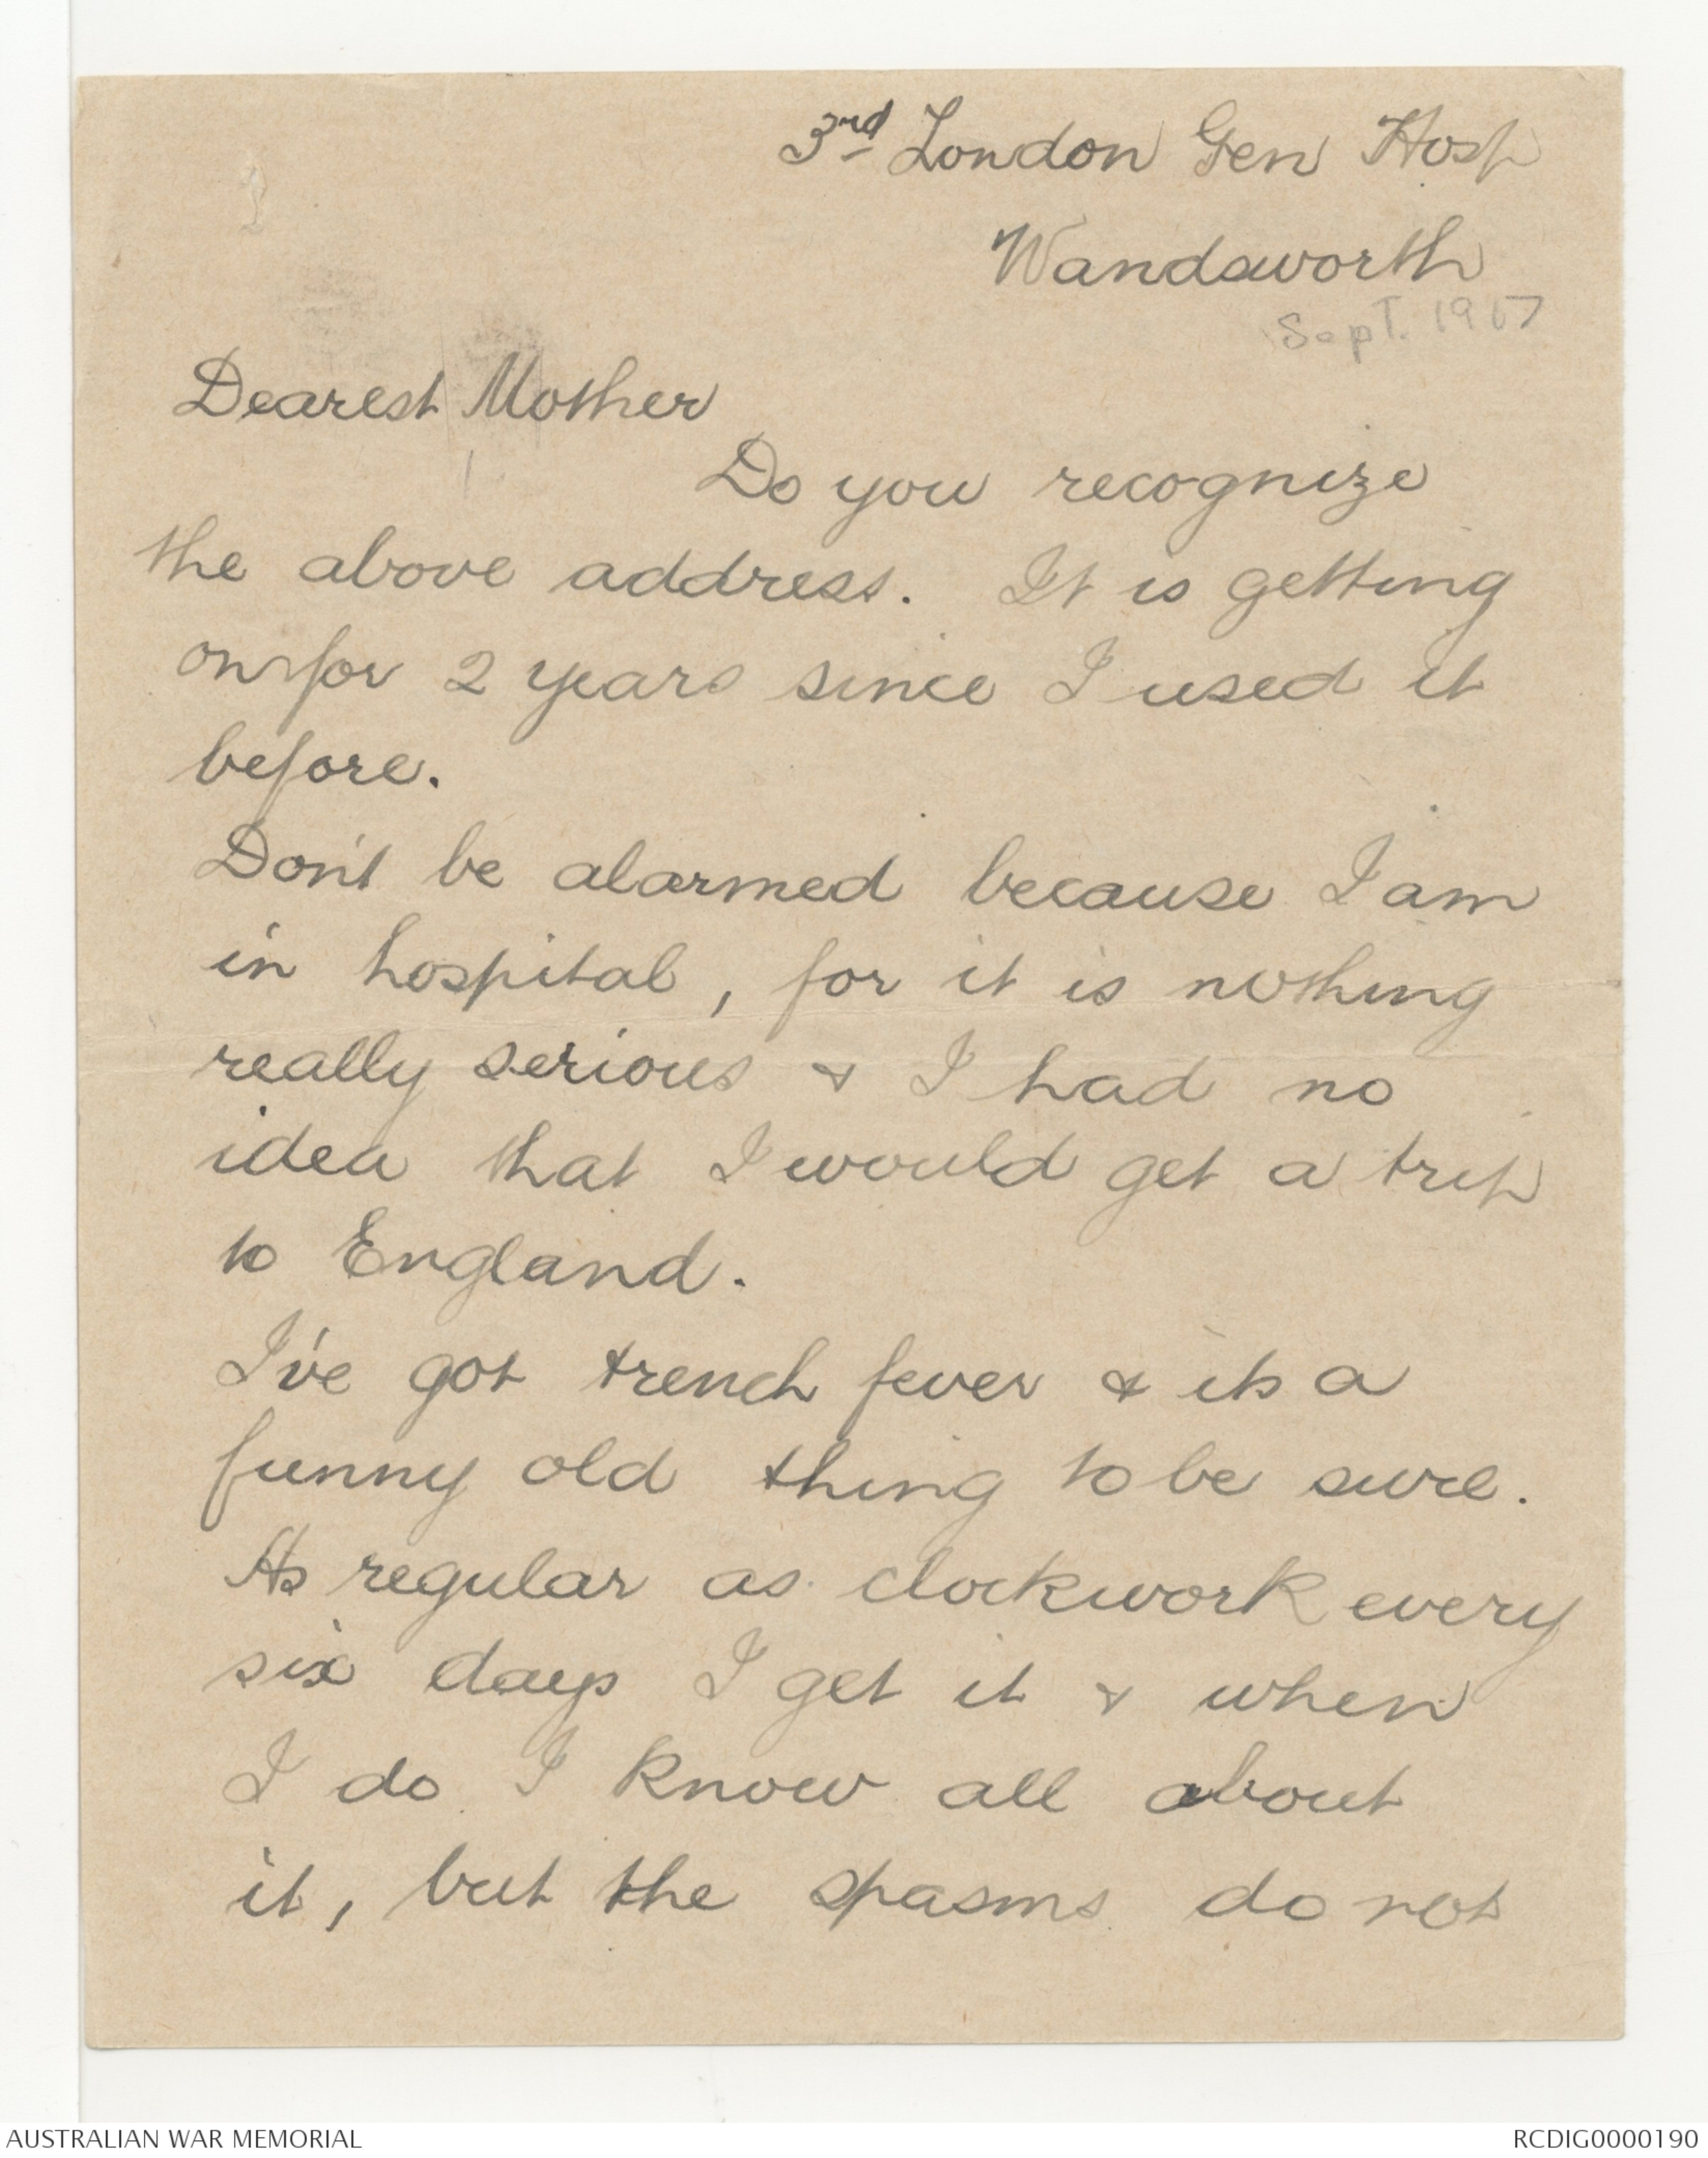 3rd London Gen Hosp
Wandsworth
Sept. 1917
Dearest Mother
Do you recognize
the above address. It is getting
on for 2 years since I used it
before.
Don't be alarmed because I am
in hospital, for it is nothing
really serious & I had no
idea that I would get a trip
to England.
I've got trench fever & its a
funny old thing to be sure.
As regular as clockwork every
six days I get it & when
I do I know all about
it, but the spasms do not
AUSTRALIAN WAR MEMORIAL
RCDIG0000190